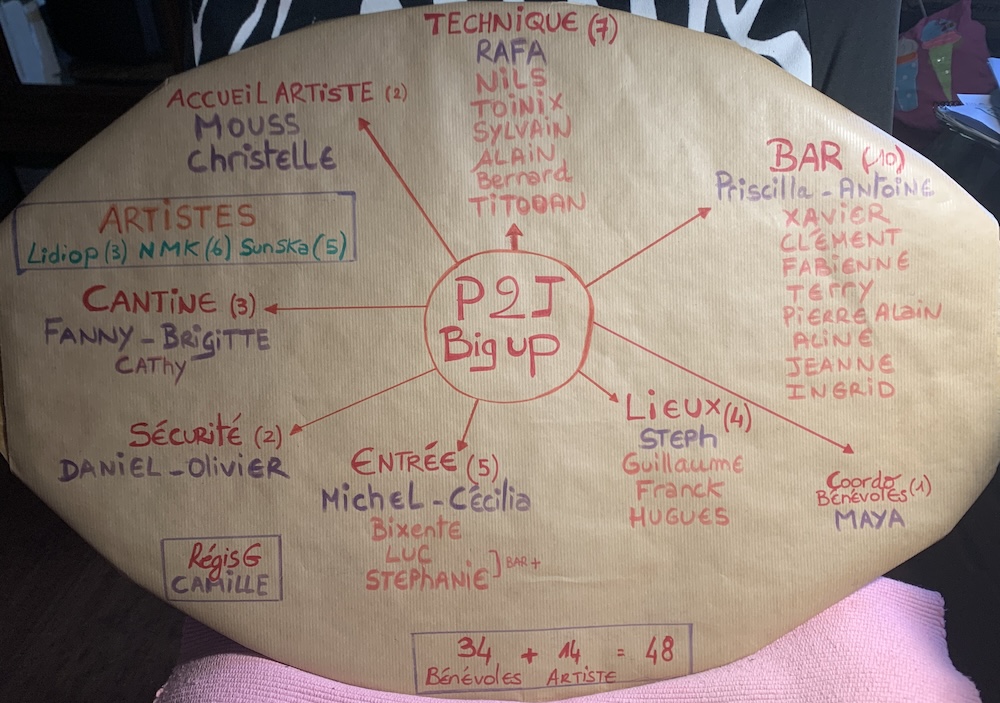 TECHNIQUE (7)
RAFA
NILS
TOINIX
SYLVAIN
ALAIN
Bernard
TITOOAN
ACCUEIL ARTISTE (2)
MOUSS
Christelle
ARTISTES
Lidiop (3) NMK (6) Sunska (5)
CANTINE (3)
FANNY - BRIGITTE
CAThy
SÉCURITÉ (2)
DANIEL - Olivier
P2J
Big up
BAR (10)
Priscilla - ANTOINE
XAVIER
CLÉMENT
FABIENNE
TERRY
PIERRE Alain
ALINE
JEANNE
INGRID
LIEUX (4)
STEPh
Guillaume
Franck
HUGUES
ENTRÉE (5)
MicheL - Cécilia
Bixente
LUC
STEPhANIE ] BAR +
Coordo
BÉNÉVOLES (1)
MAYA
Régis G
CAMILLE
34 + 14 = 48
BÉNÉVOLES ARTISTE